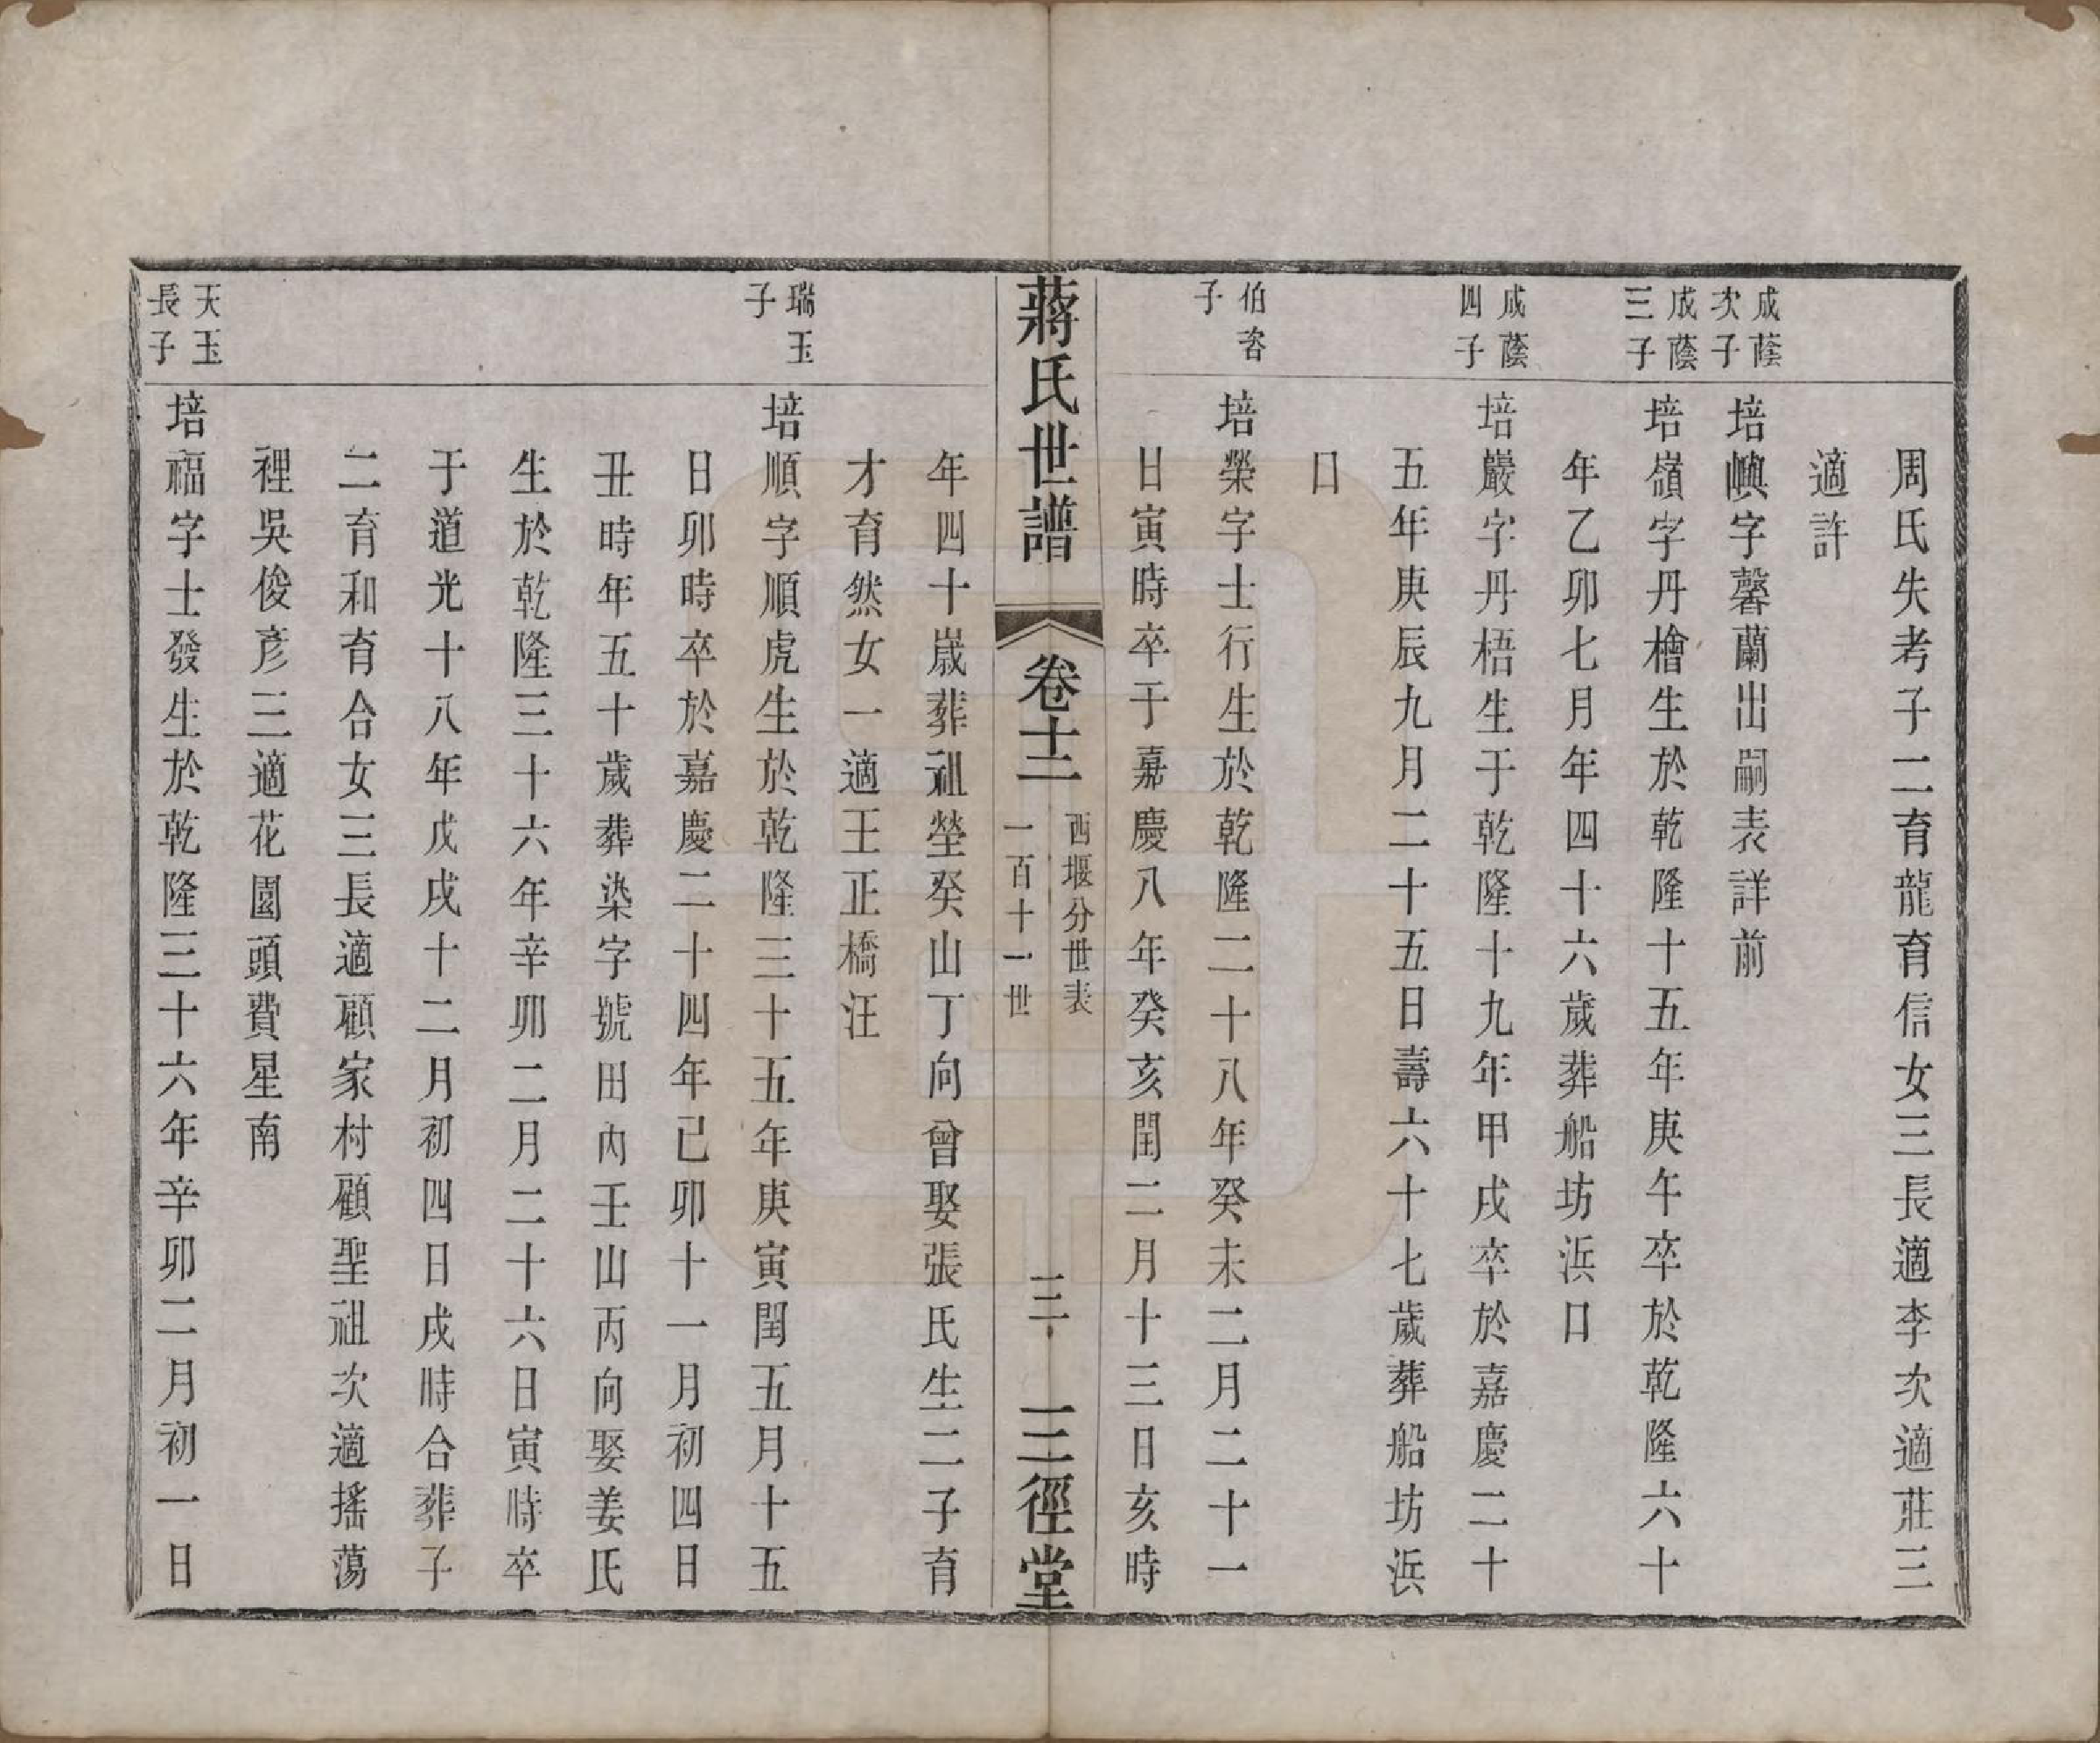 周氏失考子二育龍育信女三長適李次適莊三
適許
成蔭
次子
培嶼字馨蘭出嗣表詳前
成蔭
三子
培嶺字丹檜生於乾隆十五年庚午卒於乾隆六十
年乙卯七月年四十六歲葬船坊浜口
成蔭
四子
培巖字丹梧生于乾隆十九年甲戌卒於嘉慶二十
五年庚辰九月二十五日壽六十七歲葬船坊浜
口
伯咨
子
培榮字士行生於乾隆二十八年癸未二月二十一
日寅時卒于嘉慶八年癸亥閏二月十三日亥時
蔣氏世譜
卷十二
西堰分世表
一百十一世
三
三徑堂
年四十歲葬祖塋癸山丁向曾娶張氏生二子育
才育然女一適王正橋汪
瑞玉
子
培順字順虎生於乾隆三十五年庚寅閏五月十五
日卯時卒於嘉慶二十四年己卯十一月初四日
丑時年五十歲葬染字號田內壬山丙向娶姜氏
生於乾隆三十六年辛卯二月二十六日寅時卒
于道光十八年戊戌十二月初四日戌時合葬子
二育和育合女三長適顧家村顧聖祖次適搖蕩
裡吳俊彥三適花園頭費星南
天玉
長子
培福字士發生於乾隆三十六年辛卯二月初一日